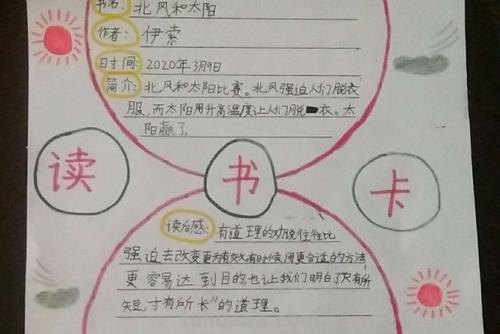 书名: 北风和太阳
作者: 伊索
日时间: 2020年3月9日
简介: 北风和太阳比赛。北风强迫人们脱衣
服,而太阳用升高温度让人们脱衣。太
阳赢了。
读 书 卡
读后感: 有道理的劝说往往比
强迫去改变更为有效有时候用更合适的方法
更容易达到目的也让我们明白了“尺有所
短,寸有所长”的道理。